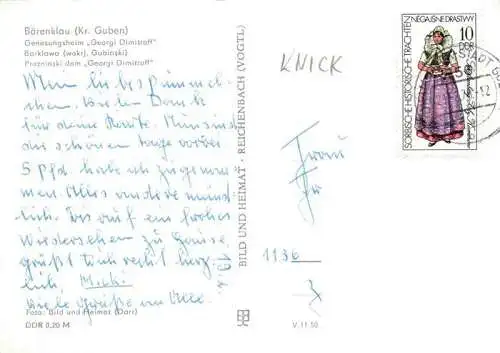 Bärenklau (Kr. Guben)
Genesungsheim „Georgi Dimitroff"
Barklawa (wokrj. Gubinski)
Prozninski dom „Georgi Dimitroff"
Mein liebes Pummel-
chen. Vielen Dank
für deine Karte. Nun sind
die schönen Tage vorbei
5 Pfd. habe ich zugenom
men Alles andere münd-
lich. Bis auf ein frohes
Wiedersehen zu Hause
grüßt dich recht herz
lich,
Viele Grüße an Alle.
Foto: Bild und Heimat (Darr)
DDR 0,20 M
BILD UND HEIMAT · REICHENBACH (VOGTL)
KNICK
Frau
1136
V 11 50
SORBISCHE HISTORISCHE TRACHTEN
NĚGAJŠNE DRASTWY
10
DDR
STADT